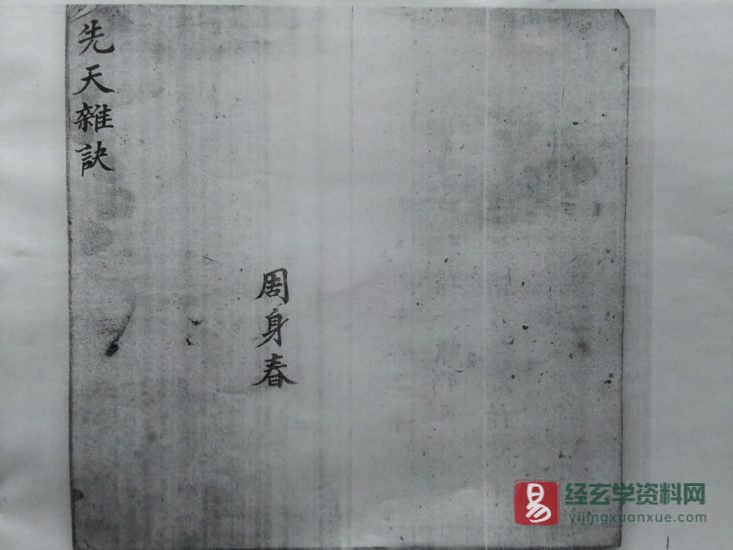 先天雜訣
周身春
易
经玄学资料网
yijingxuanxue.com